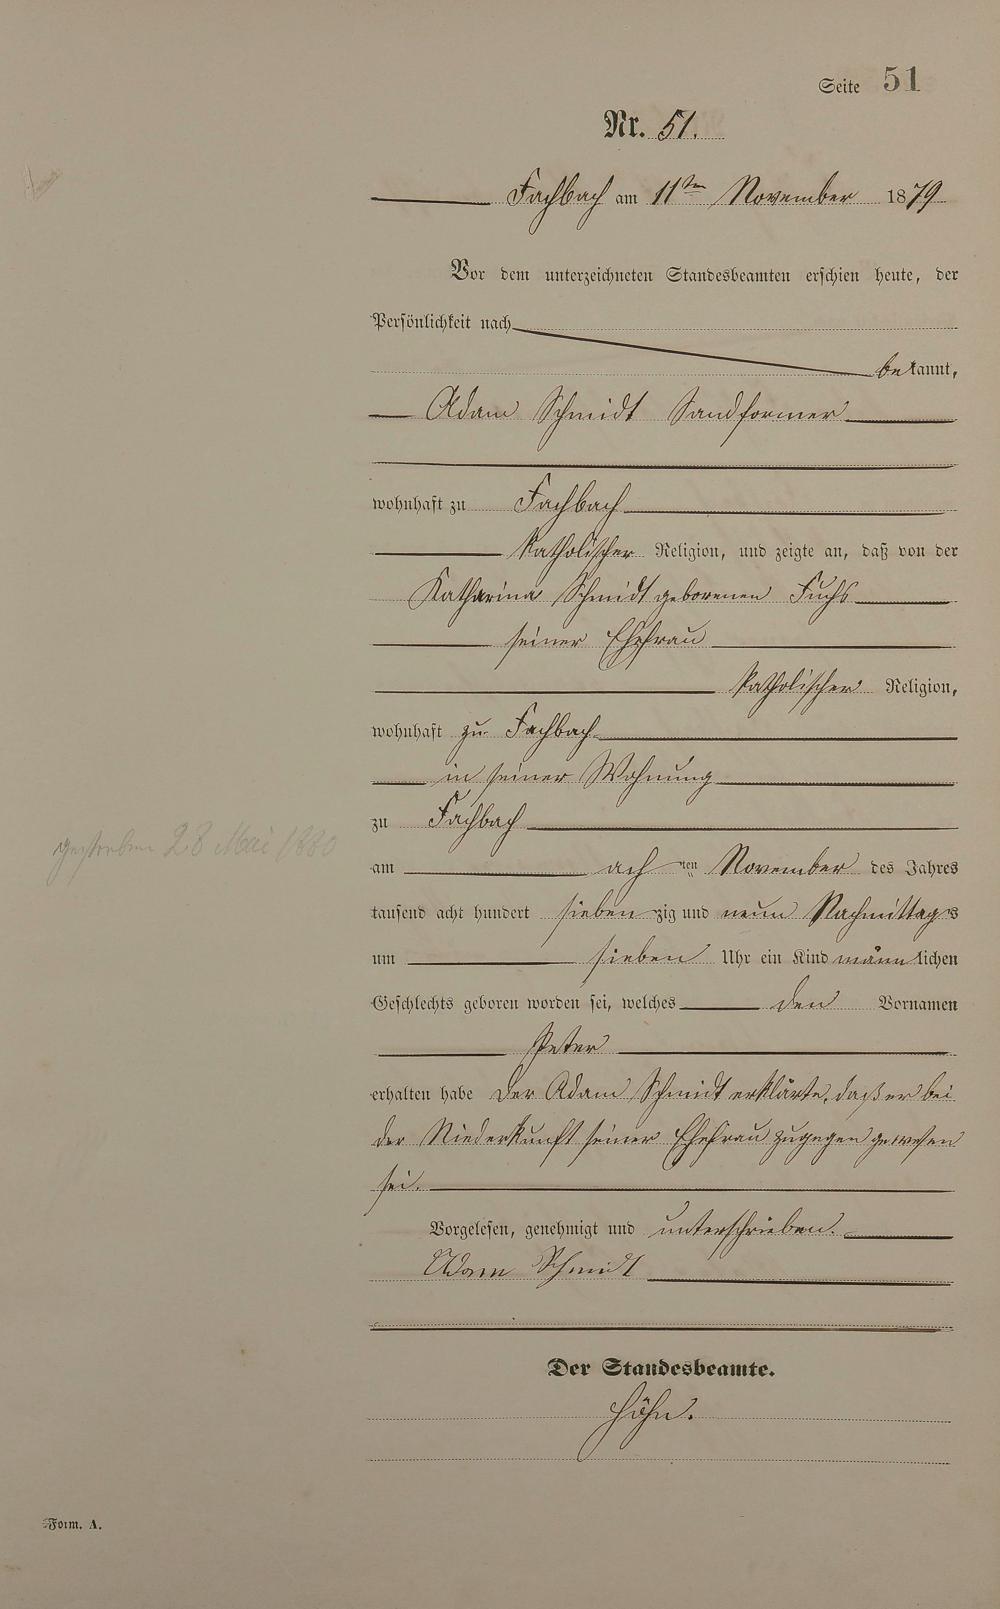 Seite 51
Nr. 51.
Fachbach am 11ten November 1879
Vor dem unterzeichneten Standesbeamten erschien heute, der
Persönlichkeit nach
bekannt,
Adam Schmidt Sandformer
wohnhaft zu Fachbach
katholischer Religion, und zeigte an, daß von der
Katharina Schmidt geborenen Fuchs
seiner Ehefrau
katholischer Religion,
wohnhaft zu Fachbach
in seiner Wohnung
zu Fachbach
gestorben 28 Mai 1880
am achten November des Jahres
tausend acht hundert siebenzig und neun Nachmittags
um sieben Uhr ein Kind männlichen
Geschlechts geboren worden sei, welches den Vornamen
Peter
erhalten habe Der Adam Schmidt erklärte, daß er bei
der Niederkunft seiner Ehefrau zugegen gewesen
sei.
Vorgelesen, genehmigt und unterschrieben.
Adam Schmidt
Der Standesbeamte.
Höhn.
Form. A.